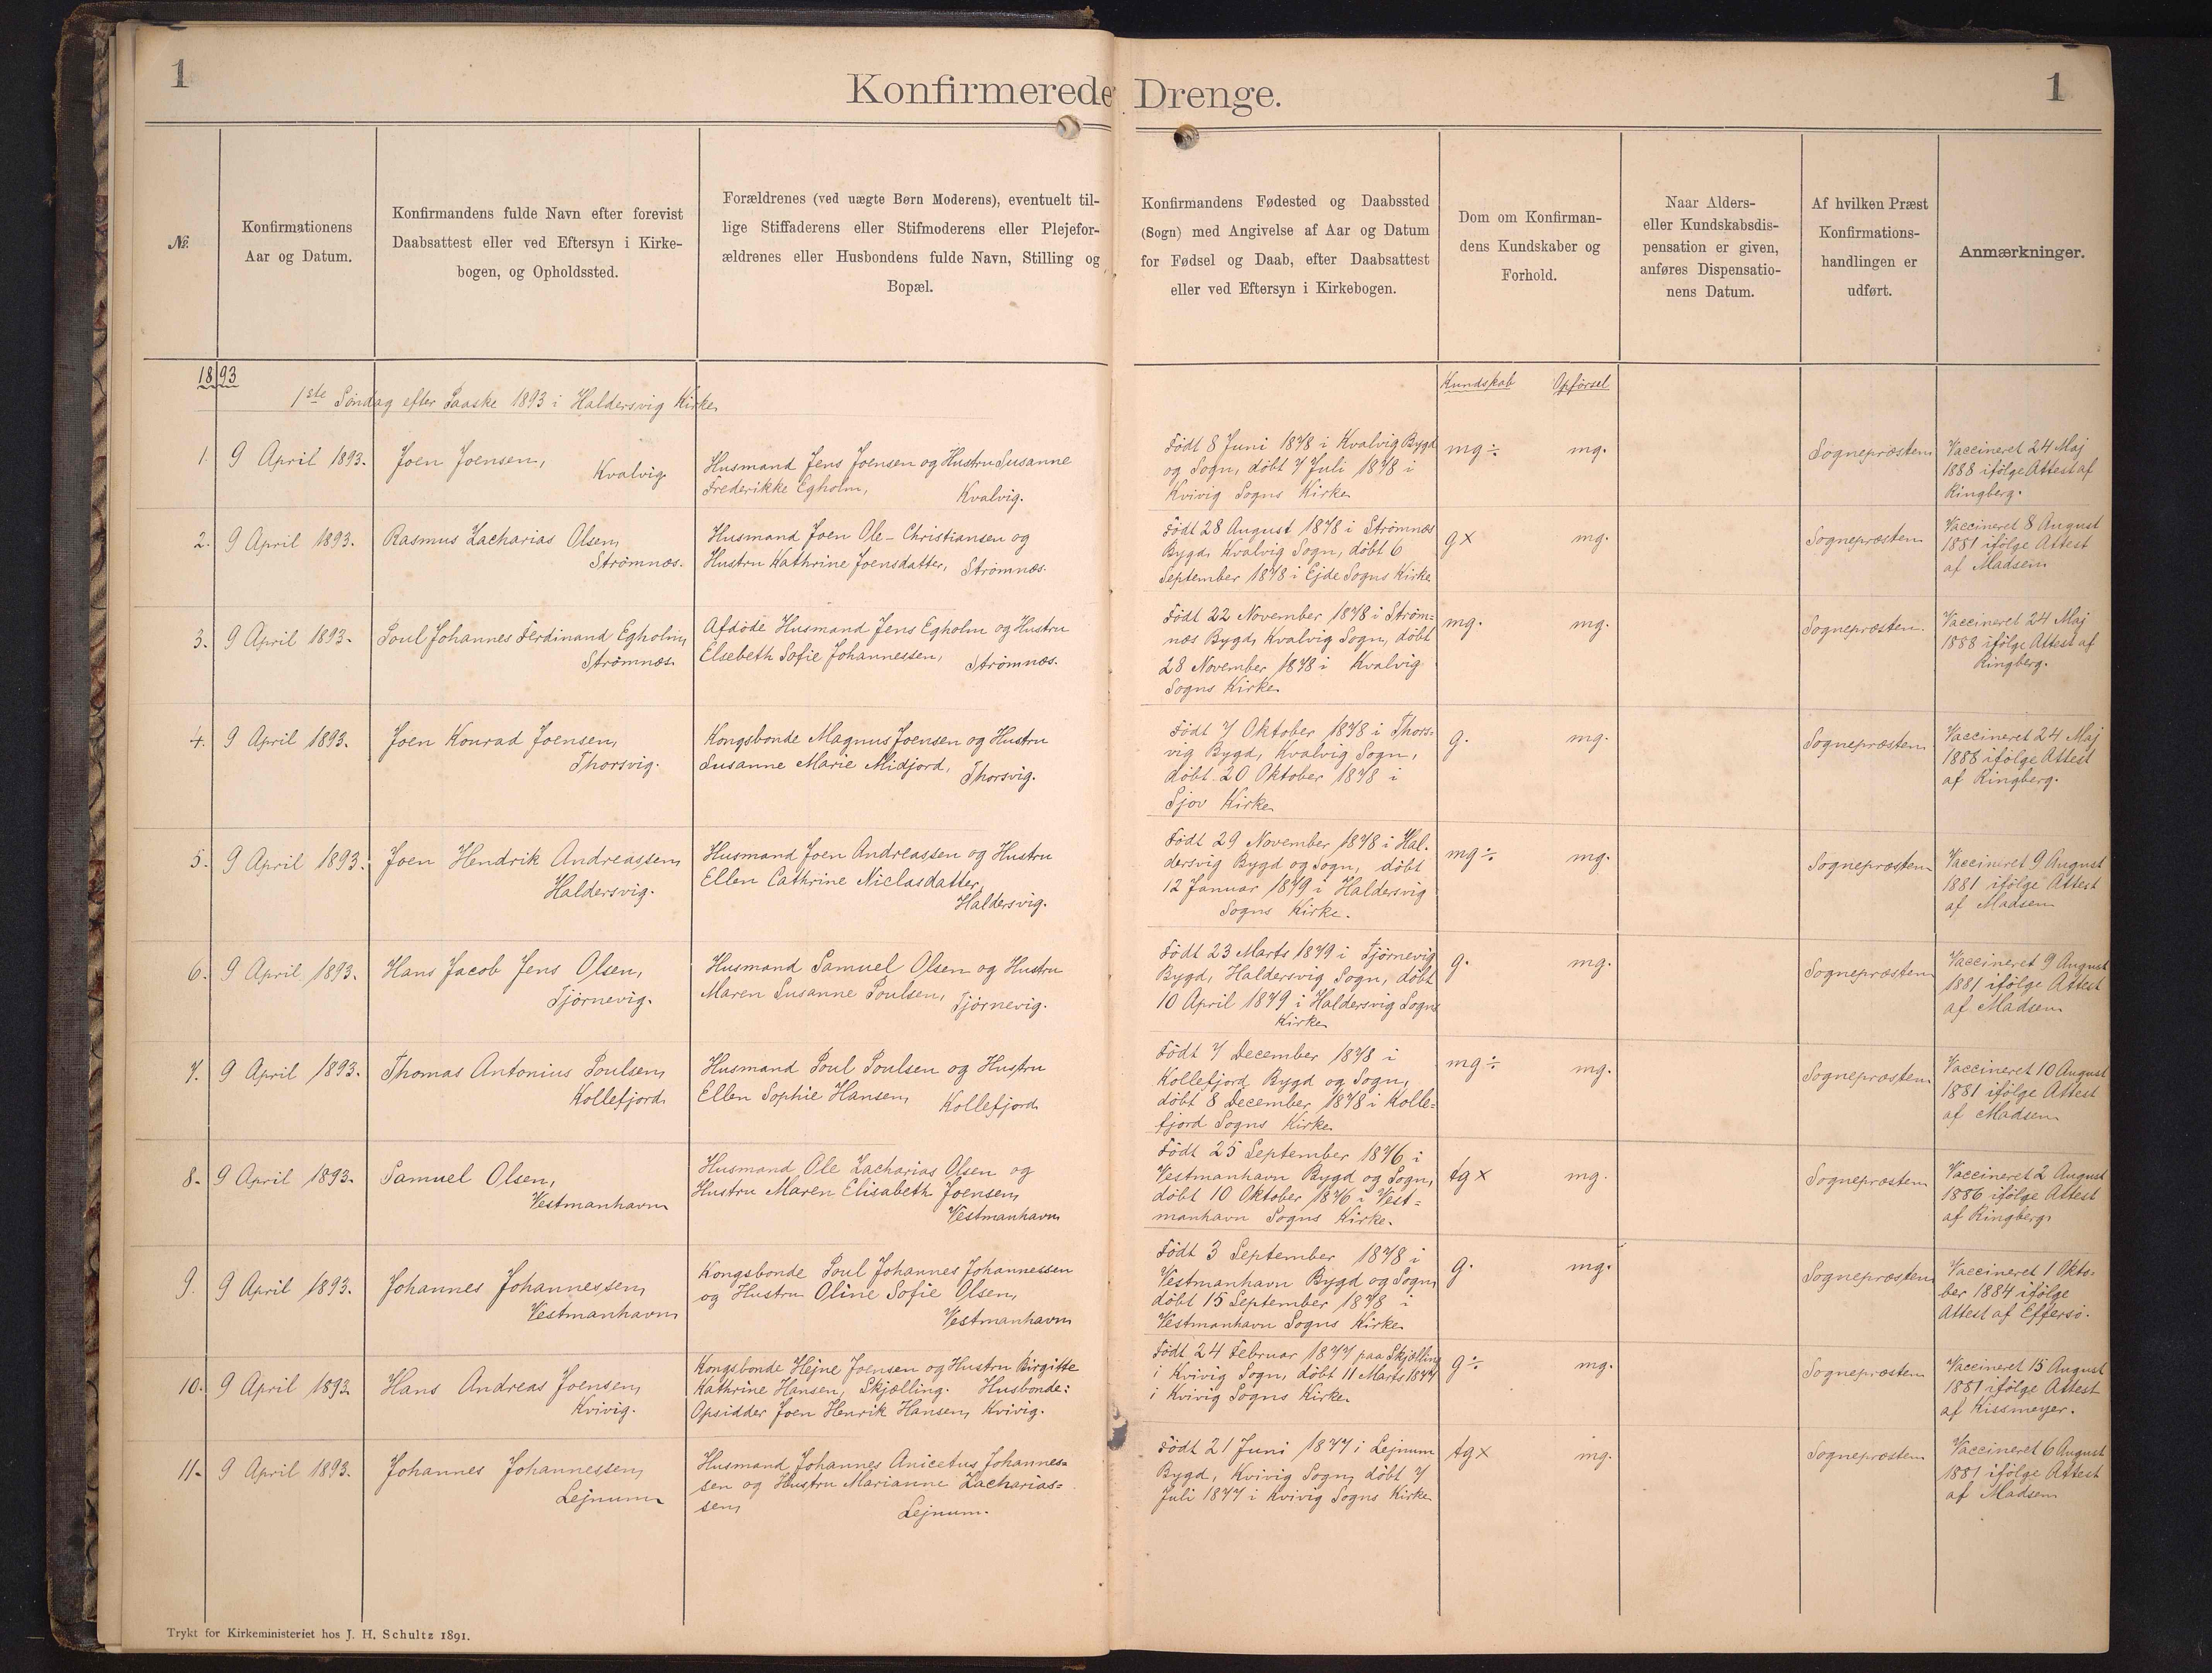 1
Konfirmerede Drenge.
1
№.
Konfirmationens
Aar og Datum.
Konfirmandens fulde Navn efter forevist
Daabsattest eller ved Eftersyn i Kirke-
bogen, og Opholdssted.
Forældrenes (ved uægte Børn Moderens), eventuelt til-
lige Stiffaderens eller Stifmoderens eller Plejefor-
ældrenes eller Husbondens fulde Navn, Stilling og
Bopæl.
Konfirmandens Fødested og Daabssted
(Sogn) med Angivelse af Aar og Datum
for Fødsel og Daab, efter Daabsattest
eller ved Eftersyn i Kirkebogen.
Dom om Konfirman-
dens Kundskaber og
Forhold.
Naar Alders-
eller Kundskabsdis-
pensation er given,
anføres Dispensatio-
nens Datum.
Af hvilken Præst
Konfirmations-
handlingen er
udført.
Anmærkninger.
1893
1ste Søndag efter Paaske 1893 i Haldersvig Kirke
Kundskab Opførsel
1. 9 April 1893.
Joen Joensen,
Kvalvig
Husmand Jens Joensen og Hustru Susanne
Frederikke Egholm,
Kvalvig.
Født 8 Juni 1878 i Kvalvig Bygd
og Sogn, døbt 7 Juli 1878 i
Kvivig Sogns Kirke
mg÷ mg.
Sognepræsten
Vaccineret 24 Maj
1888 ifølge Attest af
Ringberg.
2. 9 April 1893.
Rasmus Zacharias Olsen,
Strømnæs.
Husmand Joen Ole-Christiansen og
Hustru Kathrine Joensdatter, Strømnæs.
Født 28 August 1878 i Strømnæs
Bygd, Kvalvig Sogn, døbt 6
September 1878 i Ejde Sogns Kirke
g× mg.
Sognepræsten
Vaccineret 8 August
1881 ifølge Attest
af Madsen
3. 9 April 1893.
Poul Johannes Ferdinand Egholm,
Strømnæs.
Afdøde Husmand Jens Egholm og Hustru
Elsebeth Sofie Johannessen, Strømnæs.
Født 22 November 1878 i Strøm=
næs Bygd, Kvalvig Sogn, døbt
28 November 1878 i Kvalvig
Sogns Kirke
mg. mg.
Sognepræsten.
Vaccineret 24 Maj
1888 ifølge Attest af
Ringberg.
4. 9 April 1893.
Joen Konrad Joensen,
Thorsvig.
Kongsbonde Magnus Joensen og Hustru
Susanne Marie Midjord, Thorsvig.
Født 7 Oktober 1878 i Thors=
vig Bygd, Kvalvig Sogn,
døbt 20 Oktober 1878 i
Sjov Kirke
g. mg.
Sognepræsten
Vaccineret 24 Maj
1888 ifølge Attest
af Ringberg.
5. 9 April 1893.
Joen Hendrik Andreassen,
Haldersvig.
Husmand Joen Andreassen og Hustru
Ellen Cathrine Niclasdatter,
Haldersvig.
Født 29 November 1878 i Hal.
dersvig Bygd og Sogn, døbt
12 Januar 1879 i Haldersvig
Sogns Kirke.
mg÷ mg.
Sognepræsten
Vaccineret 9 August
1881 ifølge Attest
af Madsen
6. 9 April 1893.
Hans Jacob Jens Olsen,
Tjørnevig.
Husmand Samuel Olsen og Hustru
Maren Susanne Poulsen, Tjørnevig.
Født 23 Marts 1879 i Tjørnevig
Bygd, Haldersvig Sogn, døbt
10 April 1879 i Haldersvig Sogns
Kirke
g. mg.
Sognepræsten
Vaccineret 9 August
1881 ifølge Attest
af Madsen
7. 9 April 1893.
Thomas Antonius Poulsen,
Kollefjord
Husmand Poul Poulsen og Hustru
Ellen Sophie Hansen, Kollefjord
Født 7 December 1878 i
Kollefjord Bygd og Sogn,
døbt 8 December 1878 i Kolle=
fjord Sogns Kirke
mg÷ mg.
Sognepræsten
Vaccineret 10 August
1881 ifølge Attest
af Madsen
8. 9 April 1893.
Samuel Olsen,
Vestmanhavn
Husmand Ole Zacharias Olsen og
Hustru Maren Elisabeth Joensen,
Vestmanhavn
Født 25 September 1876 i
Vestmanhavn Bygd og Sogn,
døbt 10 Oktober 1876 i Vest=
manhavn Sogns Kirke.
tg× mg.
Sognepræsten
Vaccineret 2 August
1886 ifølge Attest
af Ringberg
9. 9 April 1893.
Johannes Johannessen,
Vestmanhavn
Kongsbonde Poul Johannes Johannessen
og Hustru Oline Sofie Olsen,
Vestmanhavn
Født 3 September 1878 i
Vestmanhavn Bygd og Sogn,
døbt 15 September 1878 i
Vestmanhavn Sogns Kirke
g. mg.
Sognepræsten
Vaccineret 1 Okto-
ber 1884 ifølge
Attest af Effersø.
10. 9 April 1893
Hans Andreas Joensen,
Kvivig.
Kongsbonde Hejne Joensen og Hustru Birgitte
Kathrine Hansen, Skjælling. Husbonde:
Opsidder Joen Henrik Hansen, Kvivig.
Født 24 Februar 1877 paa Skjælling
i Kvivig Sogn, døbt 11 Marts 1877
i Kvivig Sogns Kirke
g÷ mg.
Sognepræsten
Vaccineret 15 August
1881 ifølge Attest
af Kissmeyer.
11. 9 April 1893.
Johannes Johannessen,
Lejnum
Husmand Johannes Anicetus Johannes=
sen og Hustru Marianne Zacharias=
sen,
Lejnum.
Født 21 Juni 1877 i Lejnum
Bygd, Kvivig Sogn, døbt 7
Juli 1877 i Kvivig Sogns Kirke
tg× mg.
Sognepræsten
Vaccineret 6 August
1881 ifølge Attest
af Madsen
Trykt for Kirkeministeriet hos J. H. Schultz 1891.